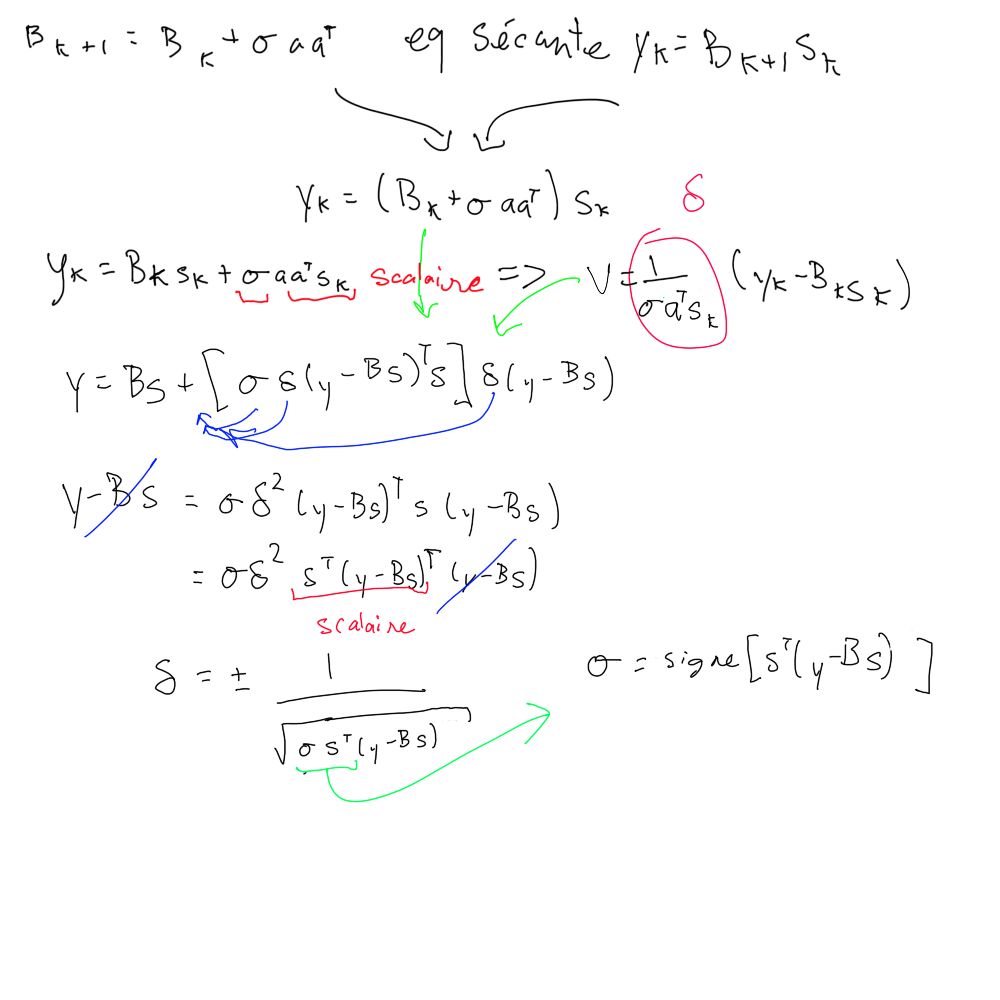 B_{k+1} = B_k + σ aaᵀ   eq sécante y_k = B_{k+1} s_k
y_k = (B_k + σ aaᵀ) s_k   δ
y_k = B_k s_k + σ aaᵀ s_k scalaire => V = 1/(σ aᵀ s_k) (y_k - B_k s_k)
y = Bs + [σ δ (y - Bs)ᵀ s] δ (y - Bs)
y - Bs = σ δ² (y - Bs)ᵀ s (y - Bs)
= σ δ² sᵀ (y - Bs)ᵀ (y - Bs)
scalaire
δ = ± 1/√(σ sᵀ (y - Bs))   σ = signe [sᵀ (y - Bs)]